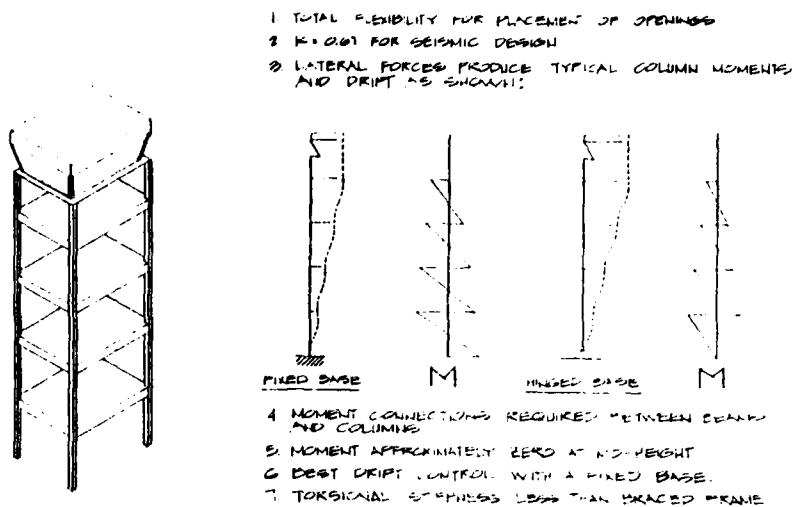 1 TOTAL FLEXIBILITY FOR PLACEMENT OF OPENINGS
2 K = 0.67 FOR SEISMIC DESIGN
3. LATERAL FORCES PRODUCE TYPICAL COLUMN MOMENTS
AND DRIFT AS SHOWN:
FIXED BASE
M
HINGED BASE
M
4 MOMENT CONNECTIONS REQUIRED BETWEEN BEAMS
AND COLUMNS
5. MOMENT APPROXIMATELY ZERO AT MID-HEIGHT
6 BEST DRIFT CONTROL WITH A FIXED BASE.
7. TORSIONAL STIFFNESS LESS THAN BRACED FRAME